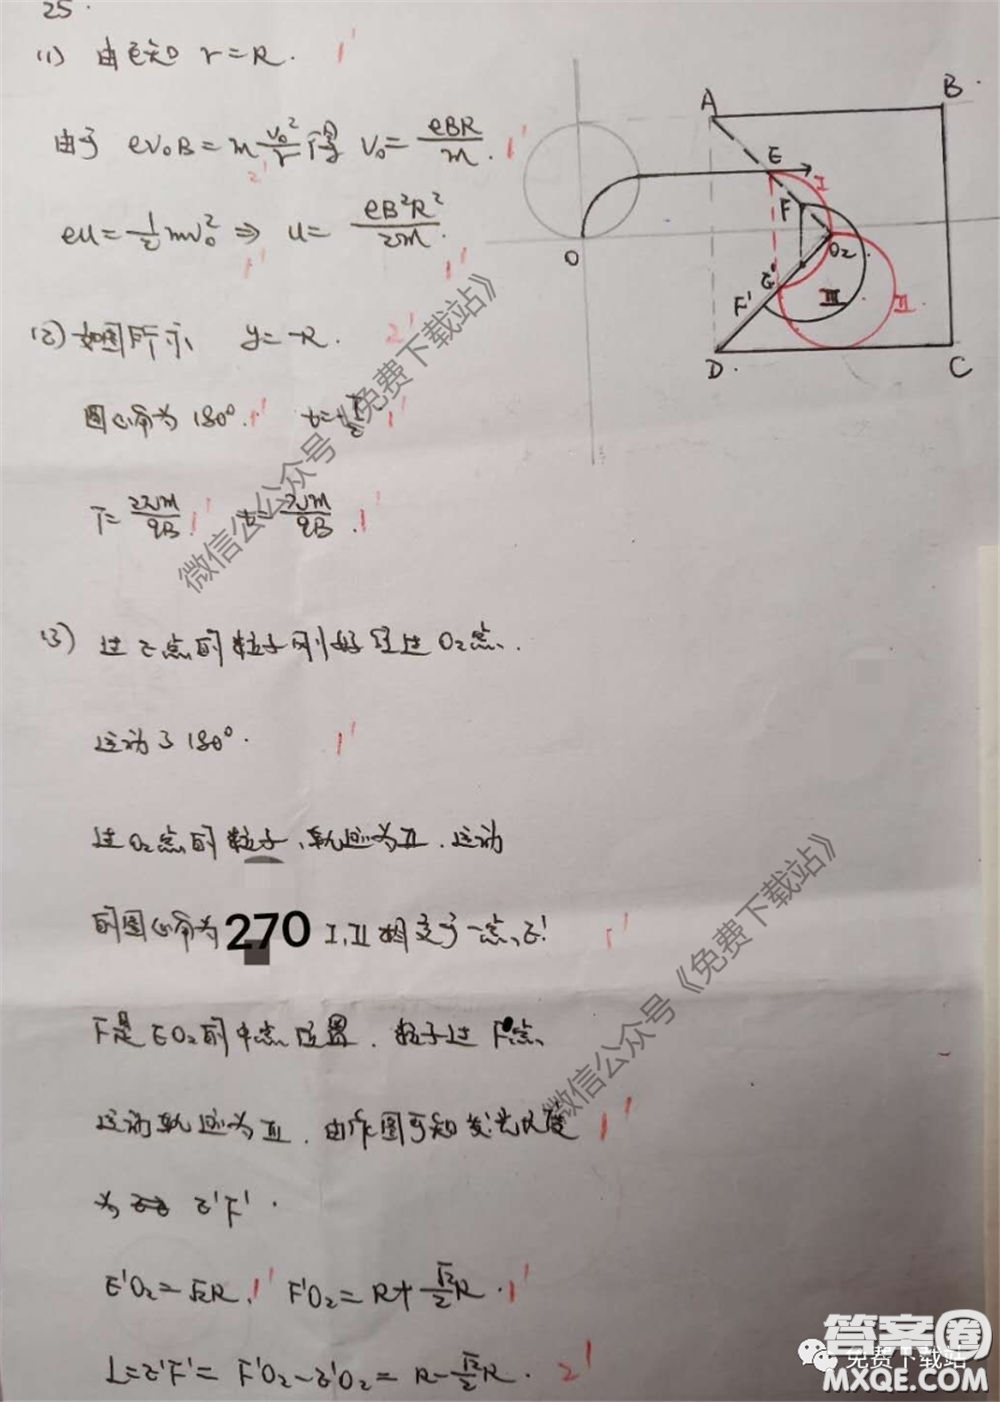 25.
(1) 由已知 r=R. 1'
由于 ev₀B=m v₀²/r 得 v₀= eBR/m . 1'
2'
eu=½mv₀² ⇒ u= eB²R²/2m .
1' 1'
(2) 如图所示 y=-R. 2'
圆心角为 180°. 1' 1'
T= 2πm/qB 1' 1'
(3) 过E点的粒子刚好经过O₂点.
运动了180°. 1'
过O₂点的粒子,轨迹为II.运动
的圆心角为270 I,II相交于一点,E'. 1'
F是EO₂的中点位置.粒子过F点
运动轨迹为III.由作图可知发光长度 1'
为 E'F'.
E'O₂=√2R. 1' F'O₂=R+ √2/2 R. 1'
L=E'F'= F'O₂-E'O₂= R- √2/2 R. 2'
A
B
E
I
F
O
O₂
E'
F'
III
II
D.
C
微信公众号《免费下载站》
微信公众号《免费下载站》
免费下载站
答案圈
MXQE.COM